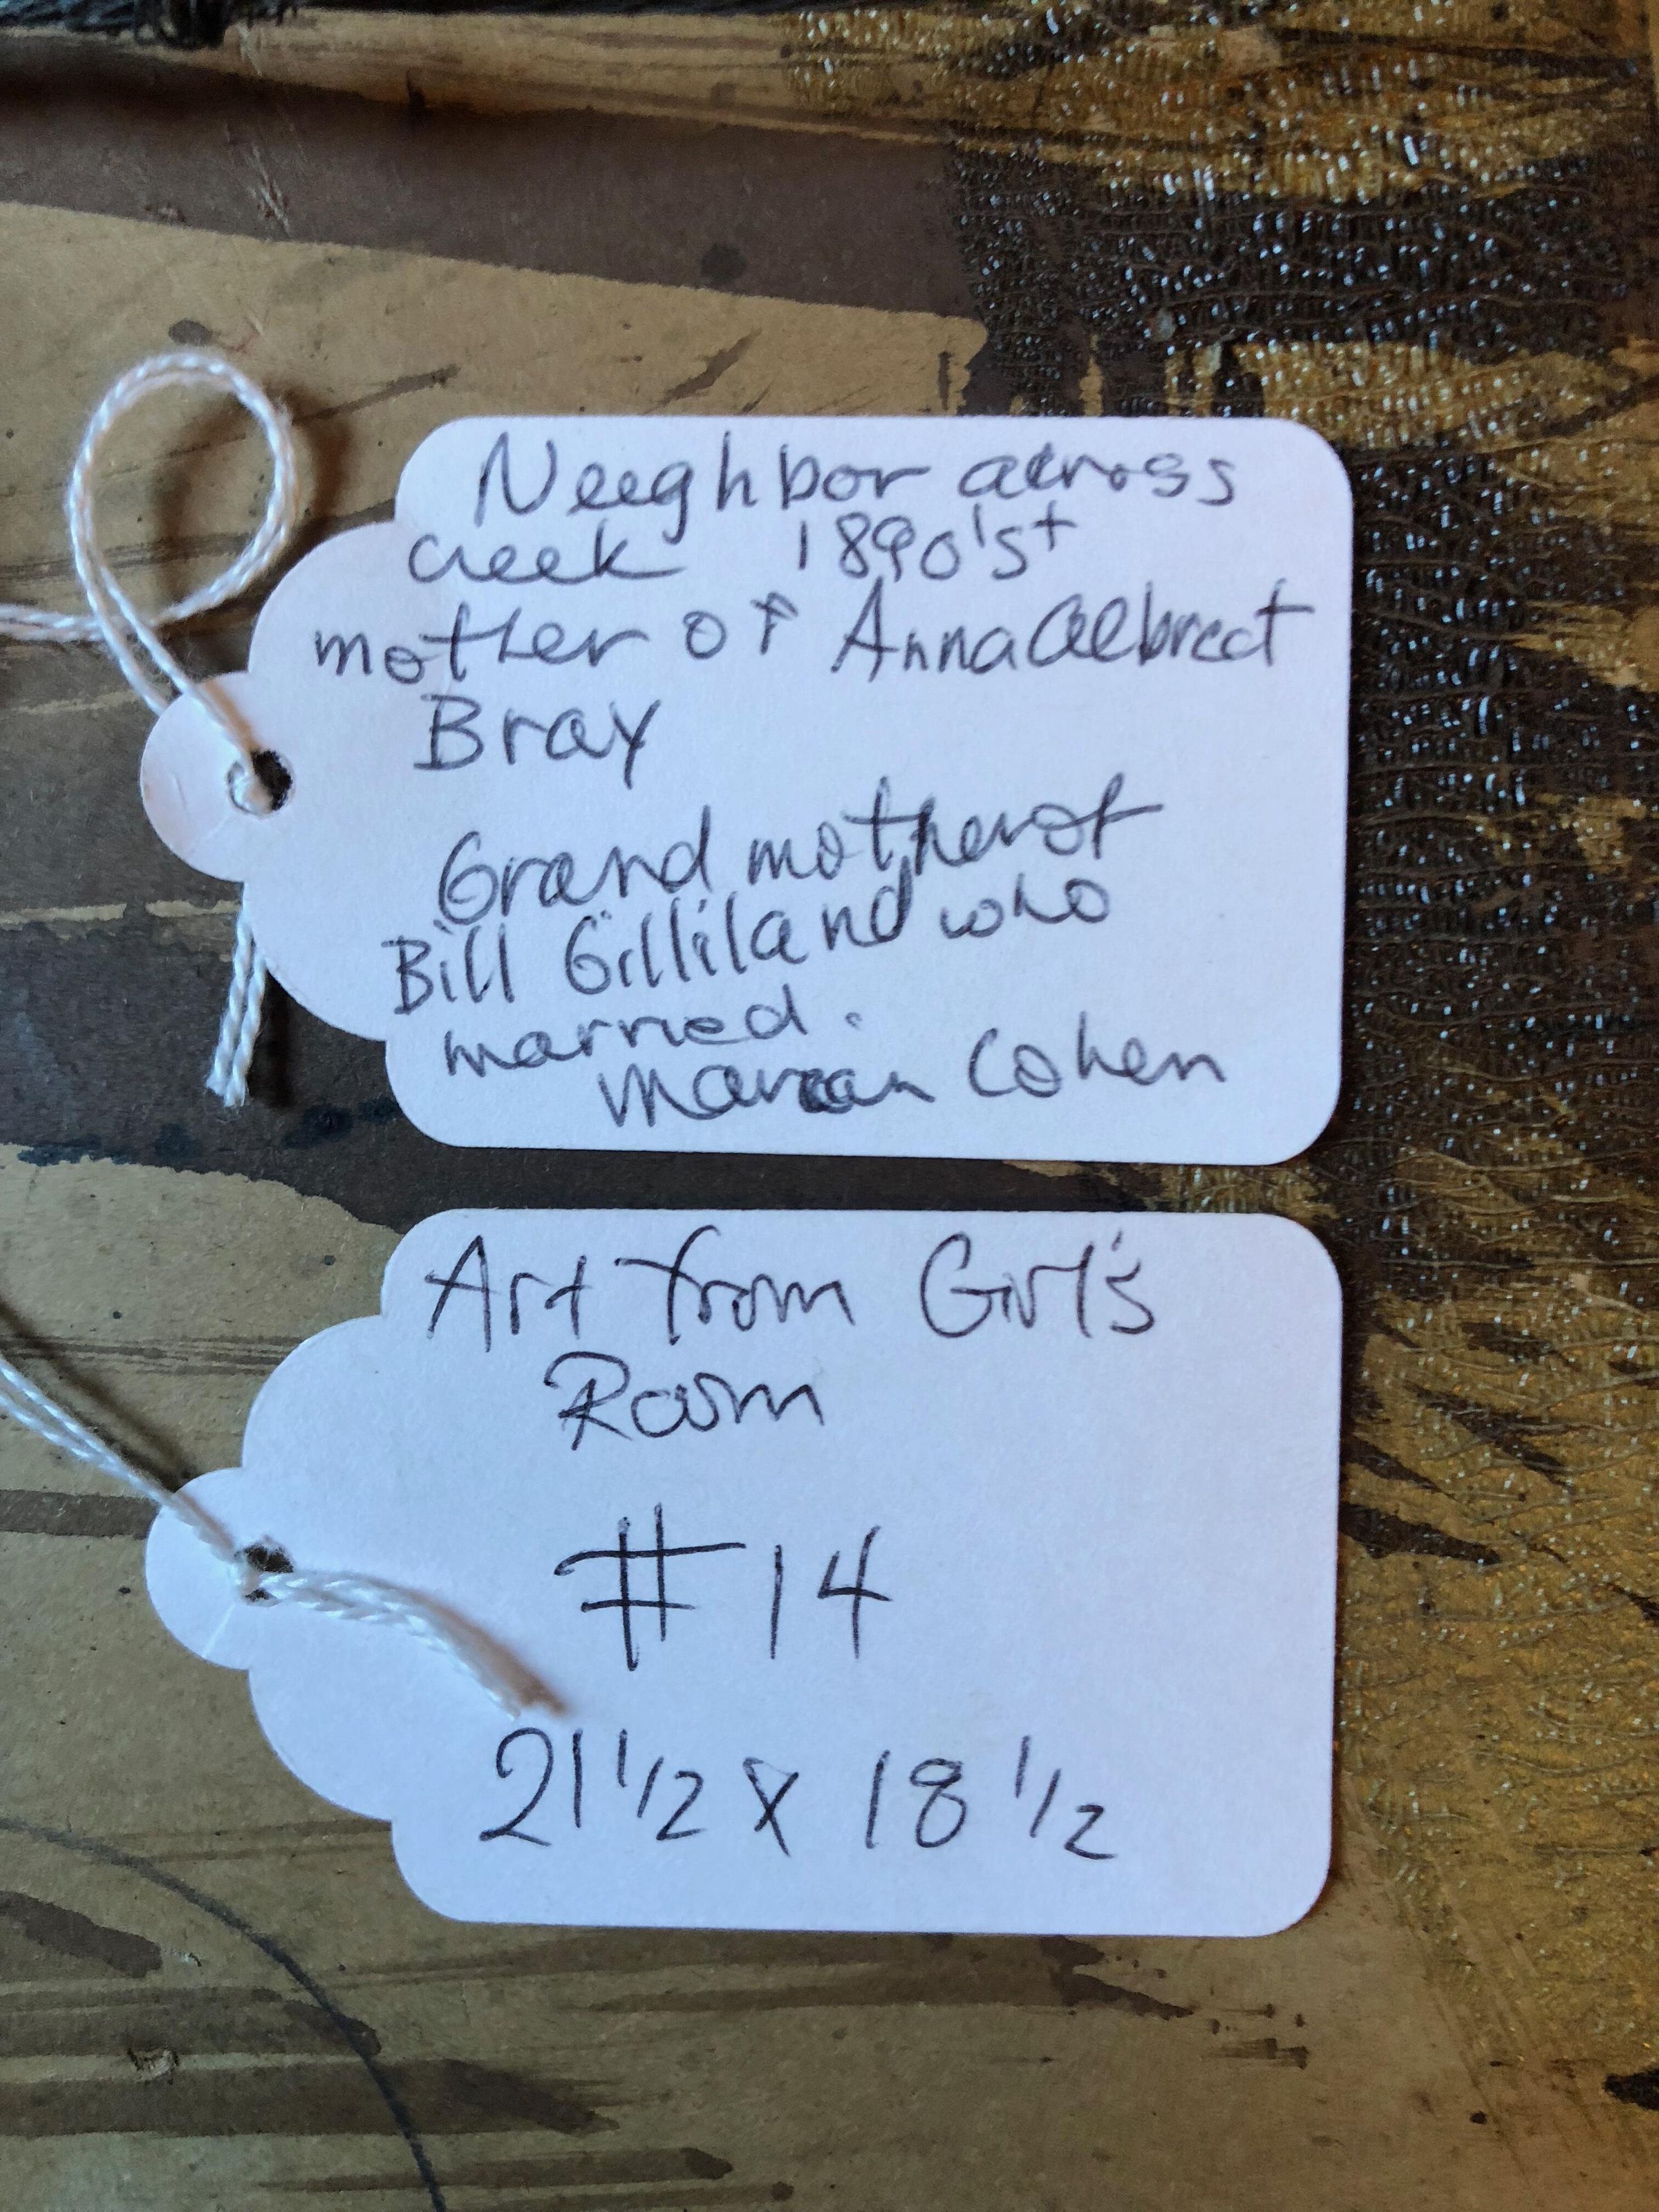 Neighbor across
creek 1890's+
mother of Anna Albrect
Bray
Grandmother of
Bill Gilliland who
married.
Cohen
Art from Girl's
Room
#14
21 1/2 x 18 1/2